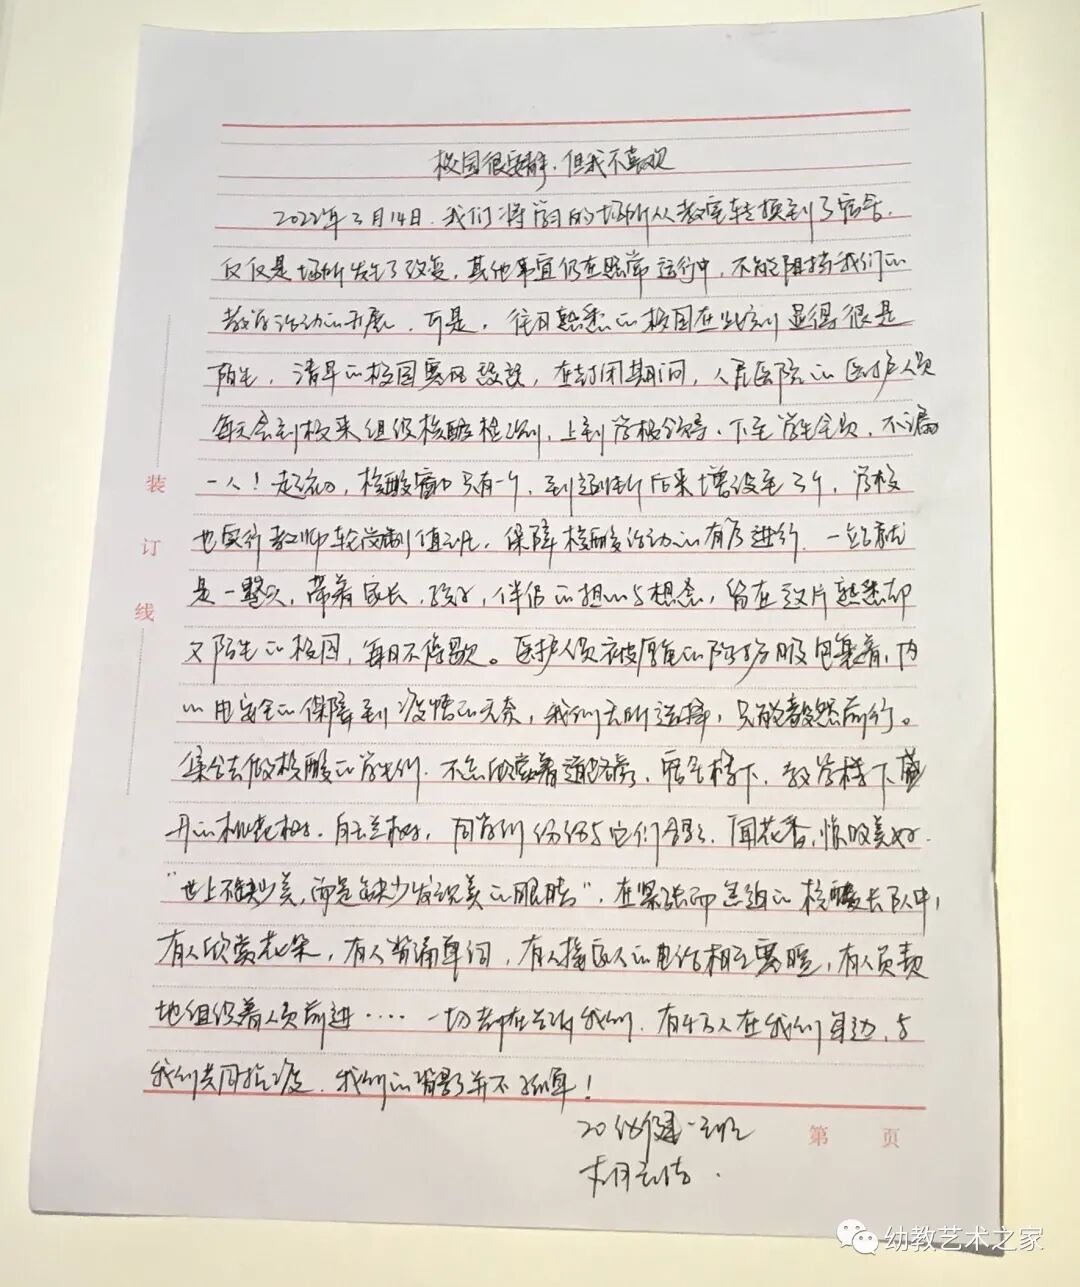 校园很安静，但我不喜欢
2022年3月14日，我们将学习的场所从教室转换到了宿舍，
仅仅是场所发生了改变，其他事宜仍在照常运行中，不能阻挡我们的
教育活动的开展，可是，往日熟悉的校园在此刻显得很是
陌生，清早的校园寒风，在封闭期间，人民医院的医护人员
每天会到校来组织核酸检测，上到学校领导，下至学生全员，不漏
一人！起初，核酸窗口只有一个，到后来增设至3个，学校
也实行教师轮岗制值班，保障核酸活动的有序进行，一站就
是一整天，带着家长，孩子，伴侣的担心与想念，留在这片熟悉却
又陌生的校园，每日不停歇。医护人员被厚重的防护服包裹着，内
心由安全的保障到疫情的无奈，我们无所选择，只能毅然前行。
集合去做核酸的学生们，不忘欣赏着道路旁，宿舍楼下，教学楼下盛
开的桃花树，白玉兰树，同学们纷纷与它们合影，闻花香，惊叹美好.
"世上不缺少美，而是缺少发现美的眼睛"，在紧张而焦迫的核酸长队中，
有人欣赏花朵，有人背诵单词，有人接家人的电话相互寒暄，有人负责
地组织着人员前进····一切都在告诉我们，有千万人在我们身边，与
我们共同抗疫，我们的背影并不孤单！
20幼健一班
装
订
线
第 页
幼教艺术之家